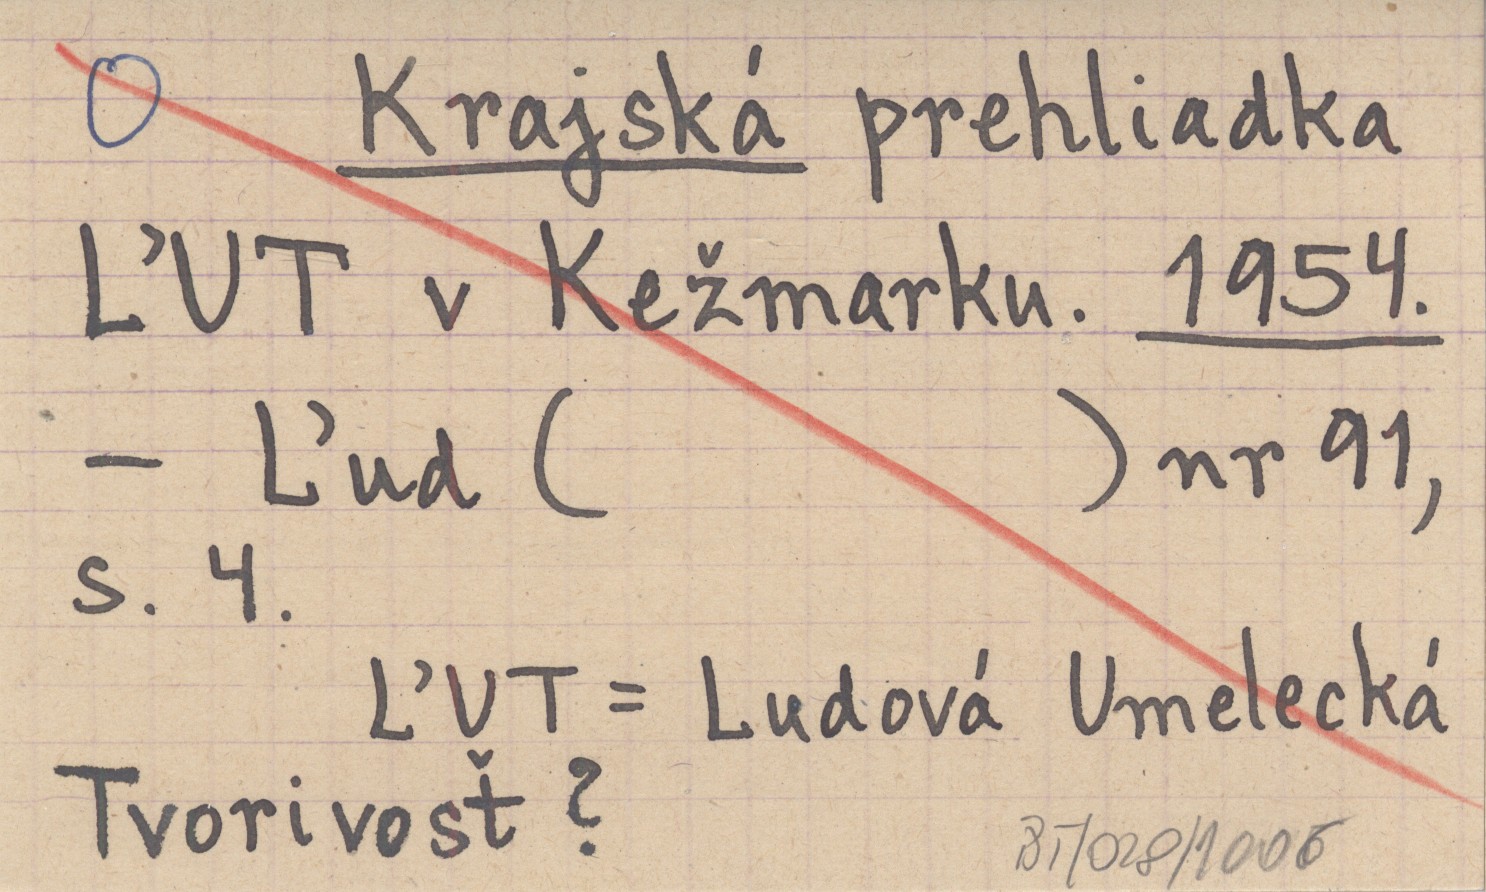 O Krajská prehliadka
ĽUT v Kežmarku. 1954.
– Ľud ( ) nr 91,
s. 4.
ĽUT = Ludová Umelecká
Tvorivosť ?
BT/028/1006